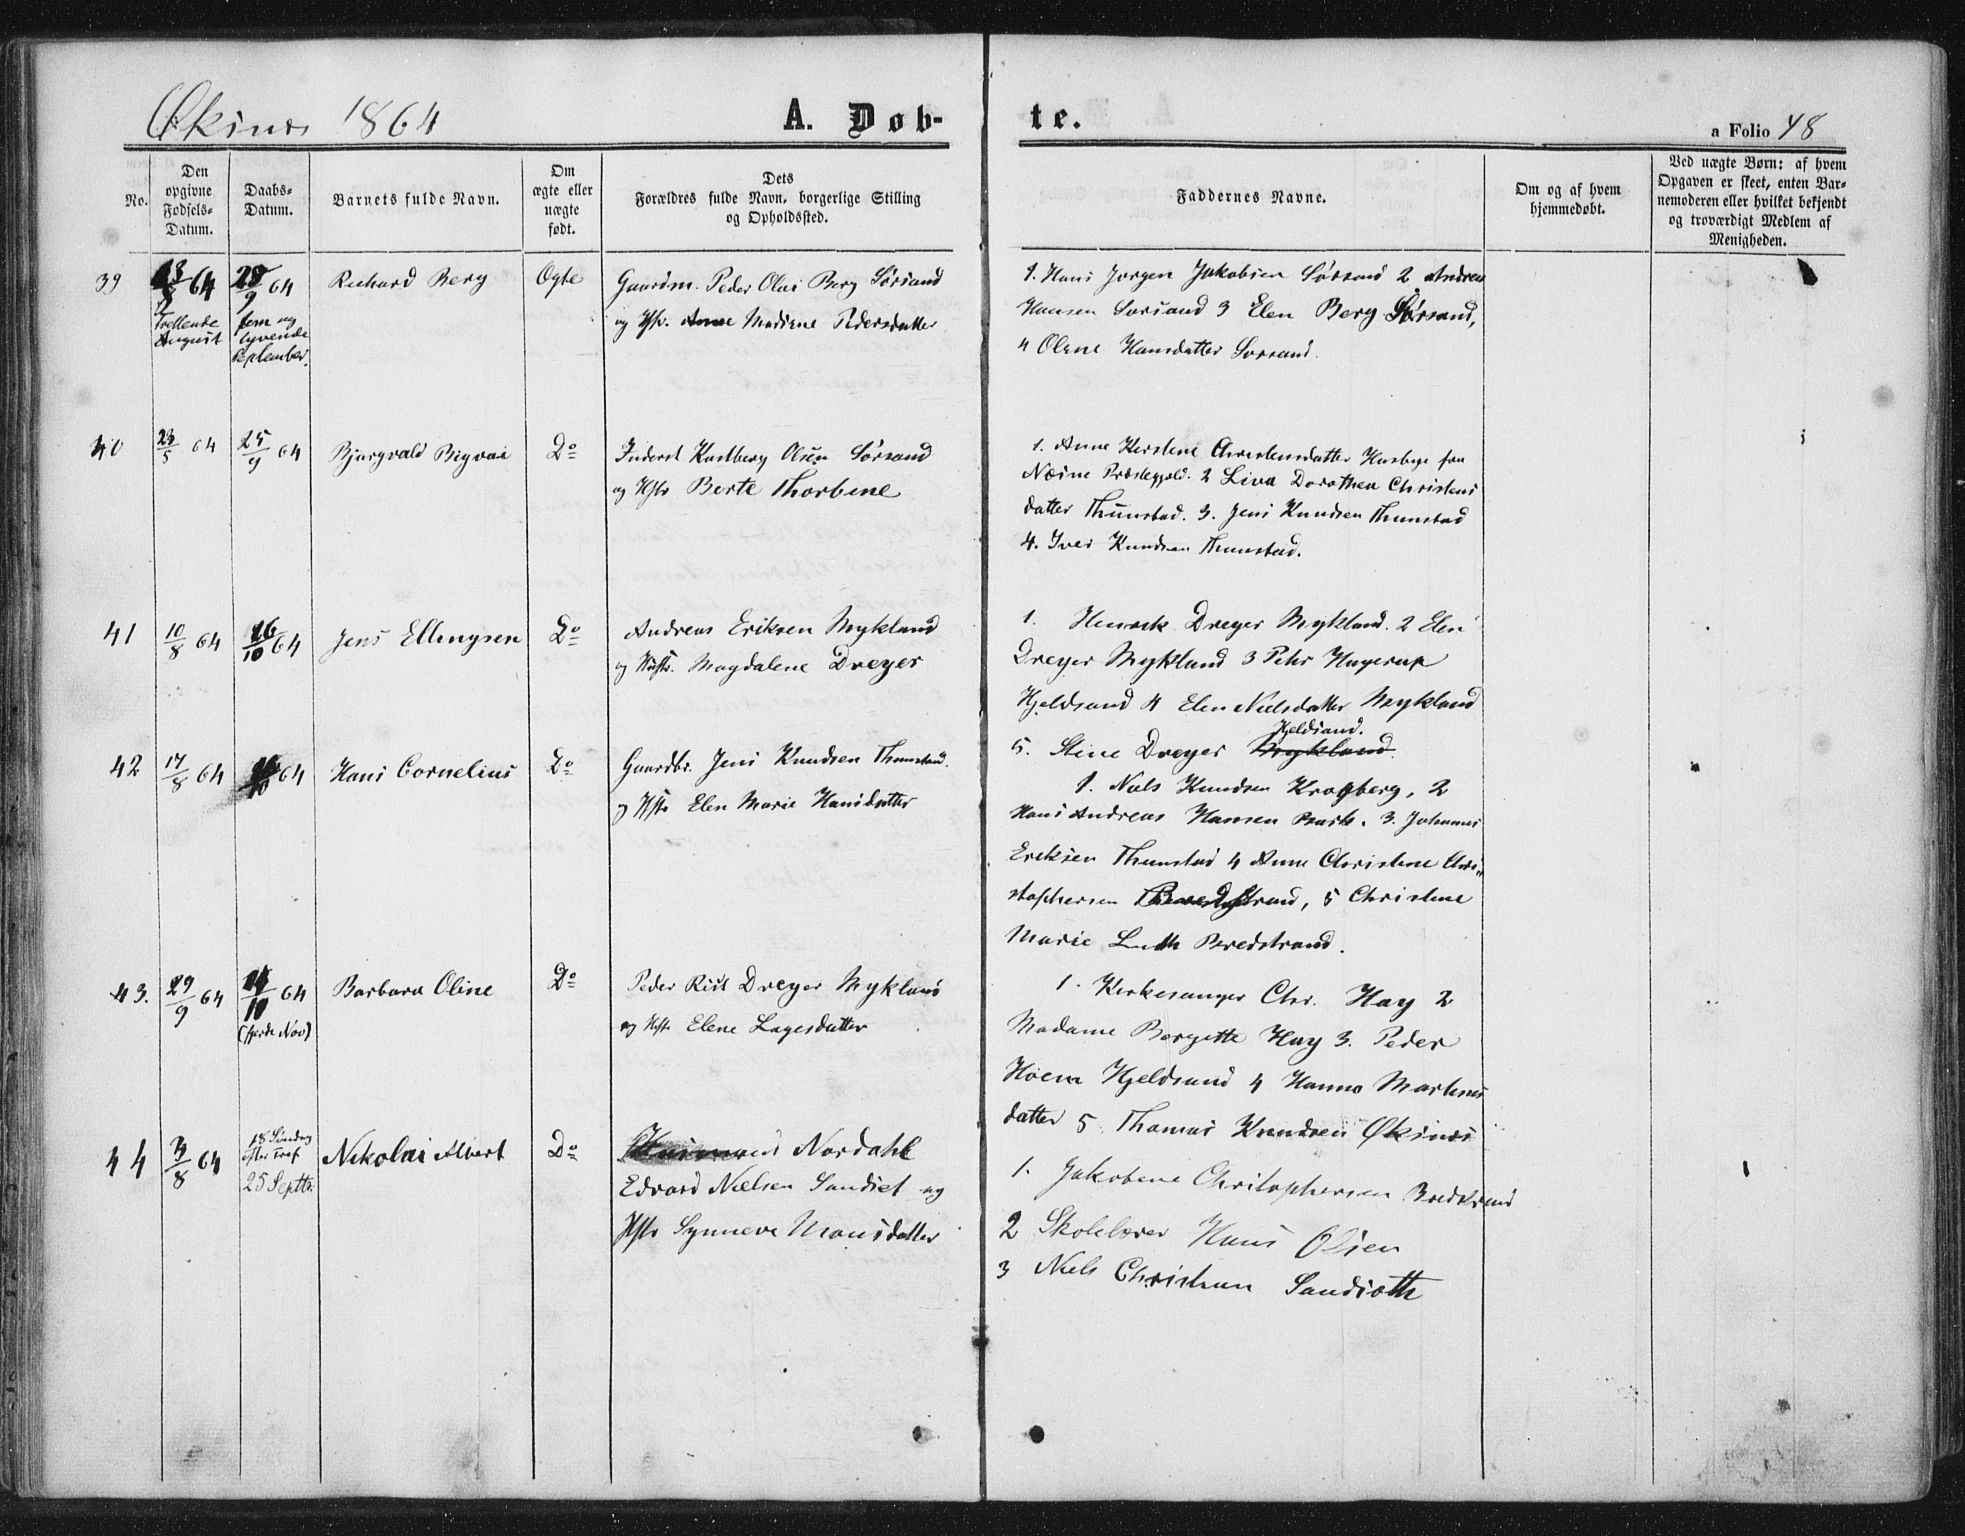 Øksnes 1864
A. Døb-
te.
a Folio 48
No.
Den opgivne Fødsels-Datum.
Daabs-Datum.
Barnets fulde Navn.
Om ægte eller uægte født.
Dets Forældres fulde Navn, borgerlige Stilling og Opholdssted.
Faddernes Navne.
Om og af hvem hjemmedøbt.
Ved uægte Børn: af hvem Opgaven er skeet, enten Barnemoderen eller hvilket bekjendt og troværdigt Medlem af Menigheden.
39
13/8 64
trettende
August
25/9 64
fem og
tyvende
September.
Richard Berg
Ægte
Gaardm. Peder Olai Berg Sørsand
og Hstr. Madrene Pedersdatter
1. Hans Jørgen Jakobsen Sørsand 2 Andreas
Hansen Sørsand 3 Elen Berg Sørsand,
4 Olene Hansdatter Sørsand.
40
23/5 64
25/9 64
Bjørgvald Bigvai
Do
Inderst Kastberg Olsen Sørsand
og Hstr Berte Thorbine
1. Anne Kirstine Christensdatter Husbye fra
Næsne Præstegjeld. 2 Liva Dorothea Christens
datter Thunstad. 3. Jens Knudsen Thunstad
4. Iver Knudsen Thunstad.
41
10/8 64
16/10 64
Jens Ellingsen
Do
Andreas Eriksen Mykland
og Hustr. Magdalene Dreyer
1. Henrick Dreyer Mykland. 2 Elen
Dreyer Mykland 3 Peter Hagerup
Hjeldsand 4 Elen Nielsdatter Mykland
Hjeldsand.
5. Stine Dreyer Mykland.
42
17/8 64
16/10 64
Hans Cornelius
Do
Gaardbr. Jens Knudsen Thunstad.
og Hstr Elen Marie Hansdatter
1. Niels Knudsen Kragberg, 2
Hans Andreas Hansen 3. Johannes
Eriksen Thunstad 4 Anne Christine Chri-
stophersen Bredstrand, 5 Christine
Marie Bredstrand.
43.
29/9 64
/10 64
(fjerde Nov)
Barbara Oline
Do
Peder Rist Dreyer Mykland
og Hstr Elene Lagesdatter
1. Kirkesanger Chr. Hay 2
Madame Bergitte Hay 3. Peder
Hoem Hjeldsand 4 Hanna Martinus
datter 5 Thomas Knudsen Øksnes
44
/8 64
18 Søndag
efter Tref
25 Septbr.
Nikolai Albert
Do
Nordahl
Edvard Nielsen Sandset og
Hstr Synneve Monsdatter
1. Jakobine Christophersen Bredstrand
2 Skolelærer Hans Olsen
3 Niels Christian